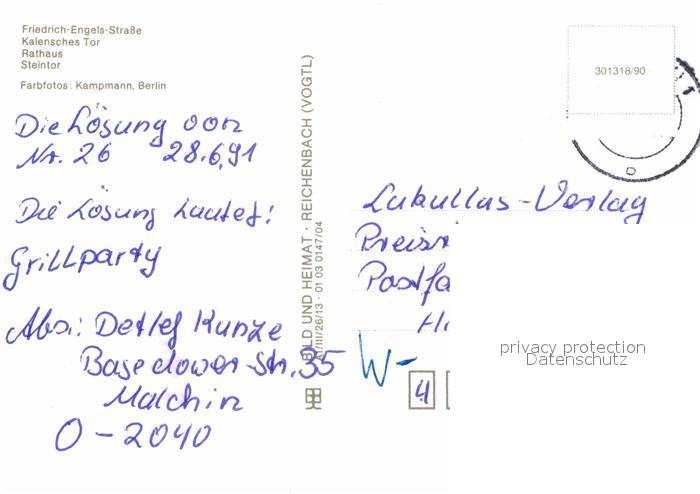 Friedrich-Engels-Straße
Kalensches Tor
Rathaus
Steintor
Farbfotos: Kampmann, Berlin
Die Lösung von
Nr. 26 28.6.91
Die Lösung Lautet!
Grillparty
Abs.: Detlef Kunze
Basedower Str. 35
Malchin
O-2040
BILD UND HEIMAT · REICHENBACH (VOGTL)
III/26/13 · 01 03 0147/04
301318/90
Lukullus-Verlag
Preisr
Postfa
W-
4
privacy protection
Datenschutz